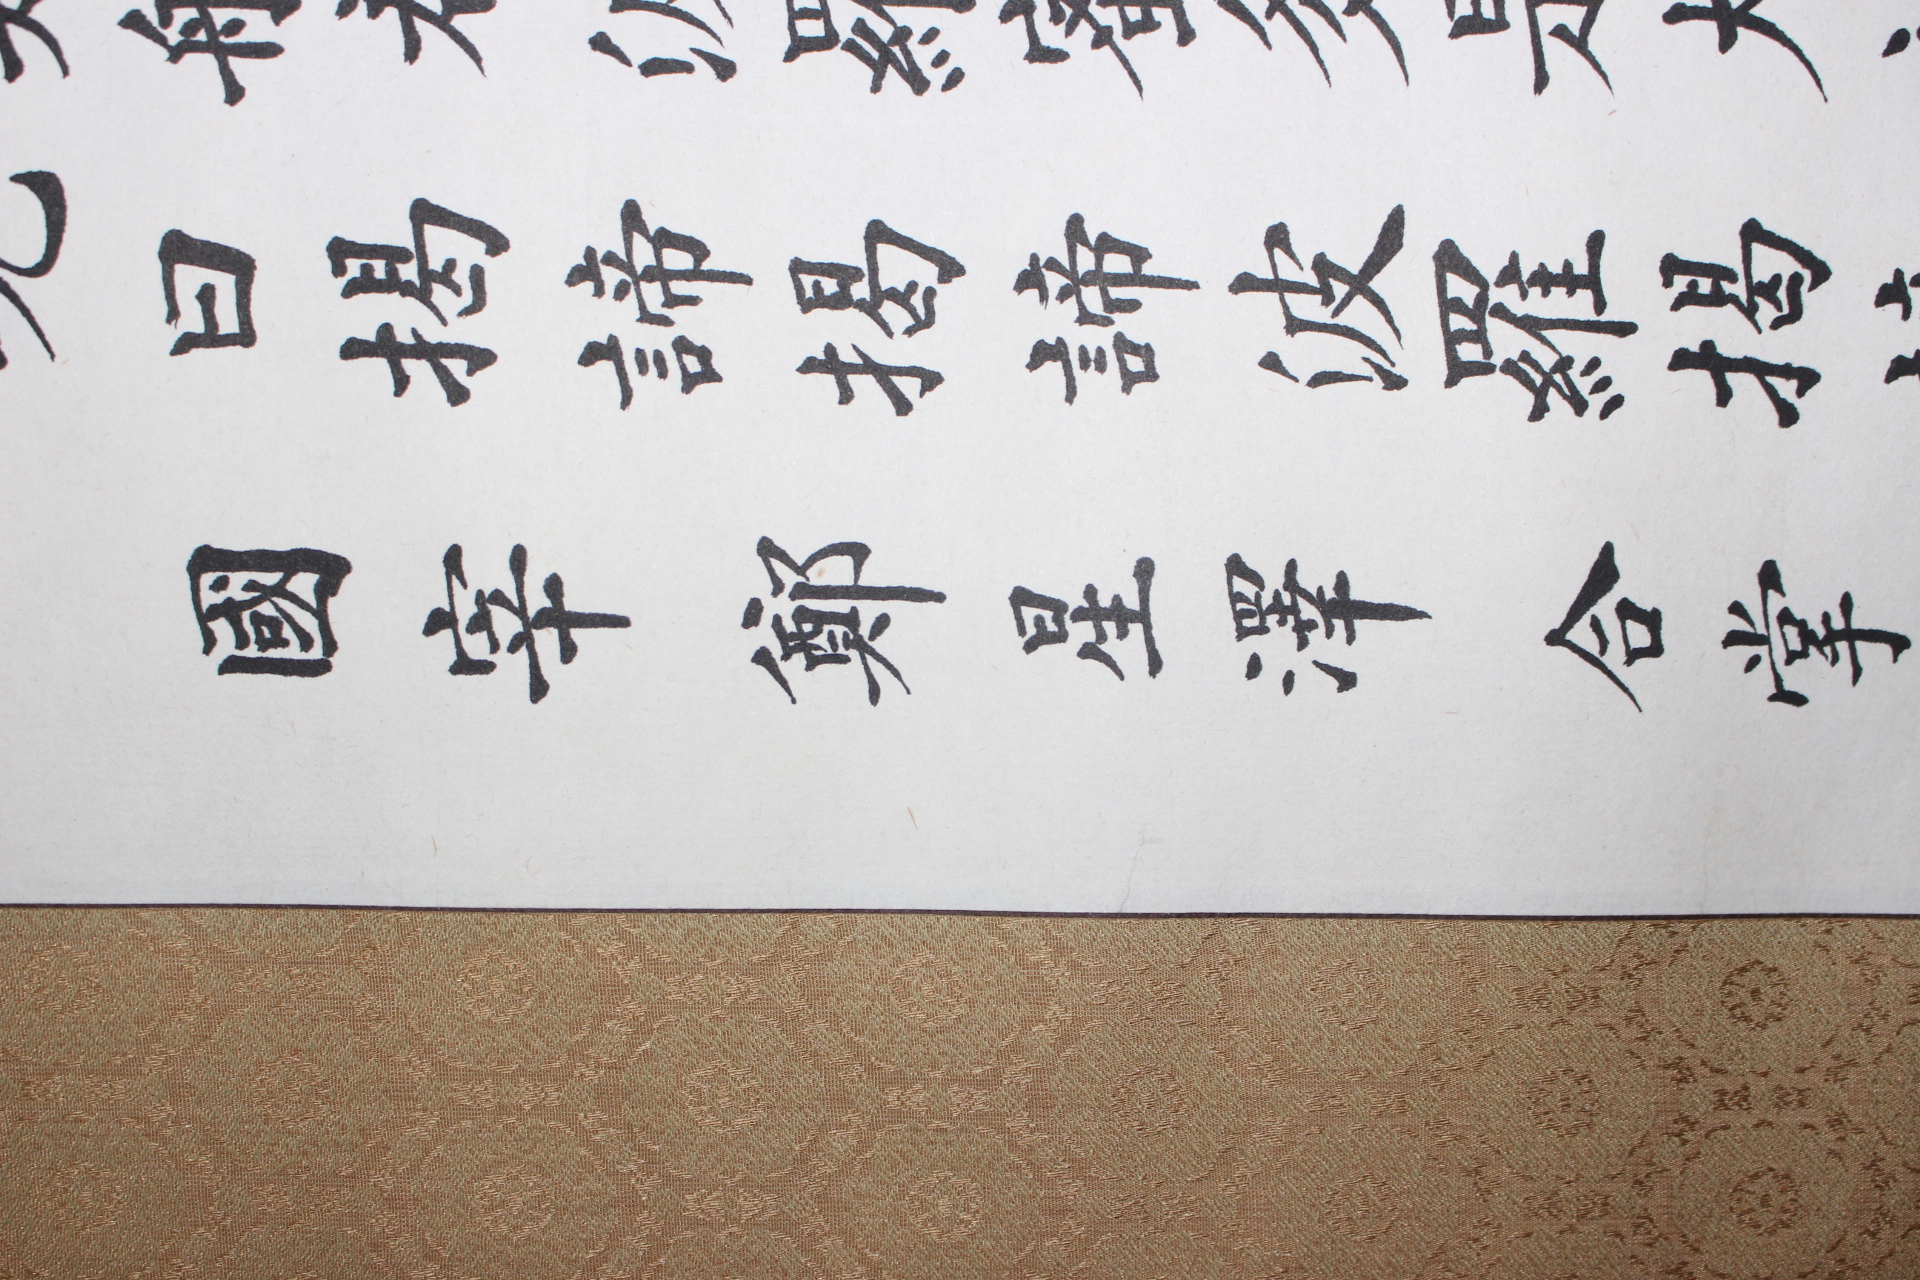 般若波羅蜜多是大
曰揭諦揭諦波羅揭
國宰 鄭星澤 合掌